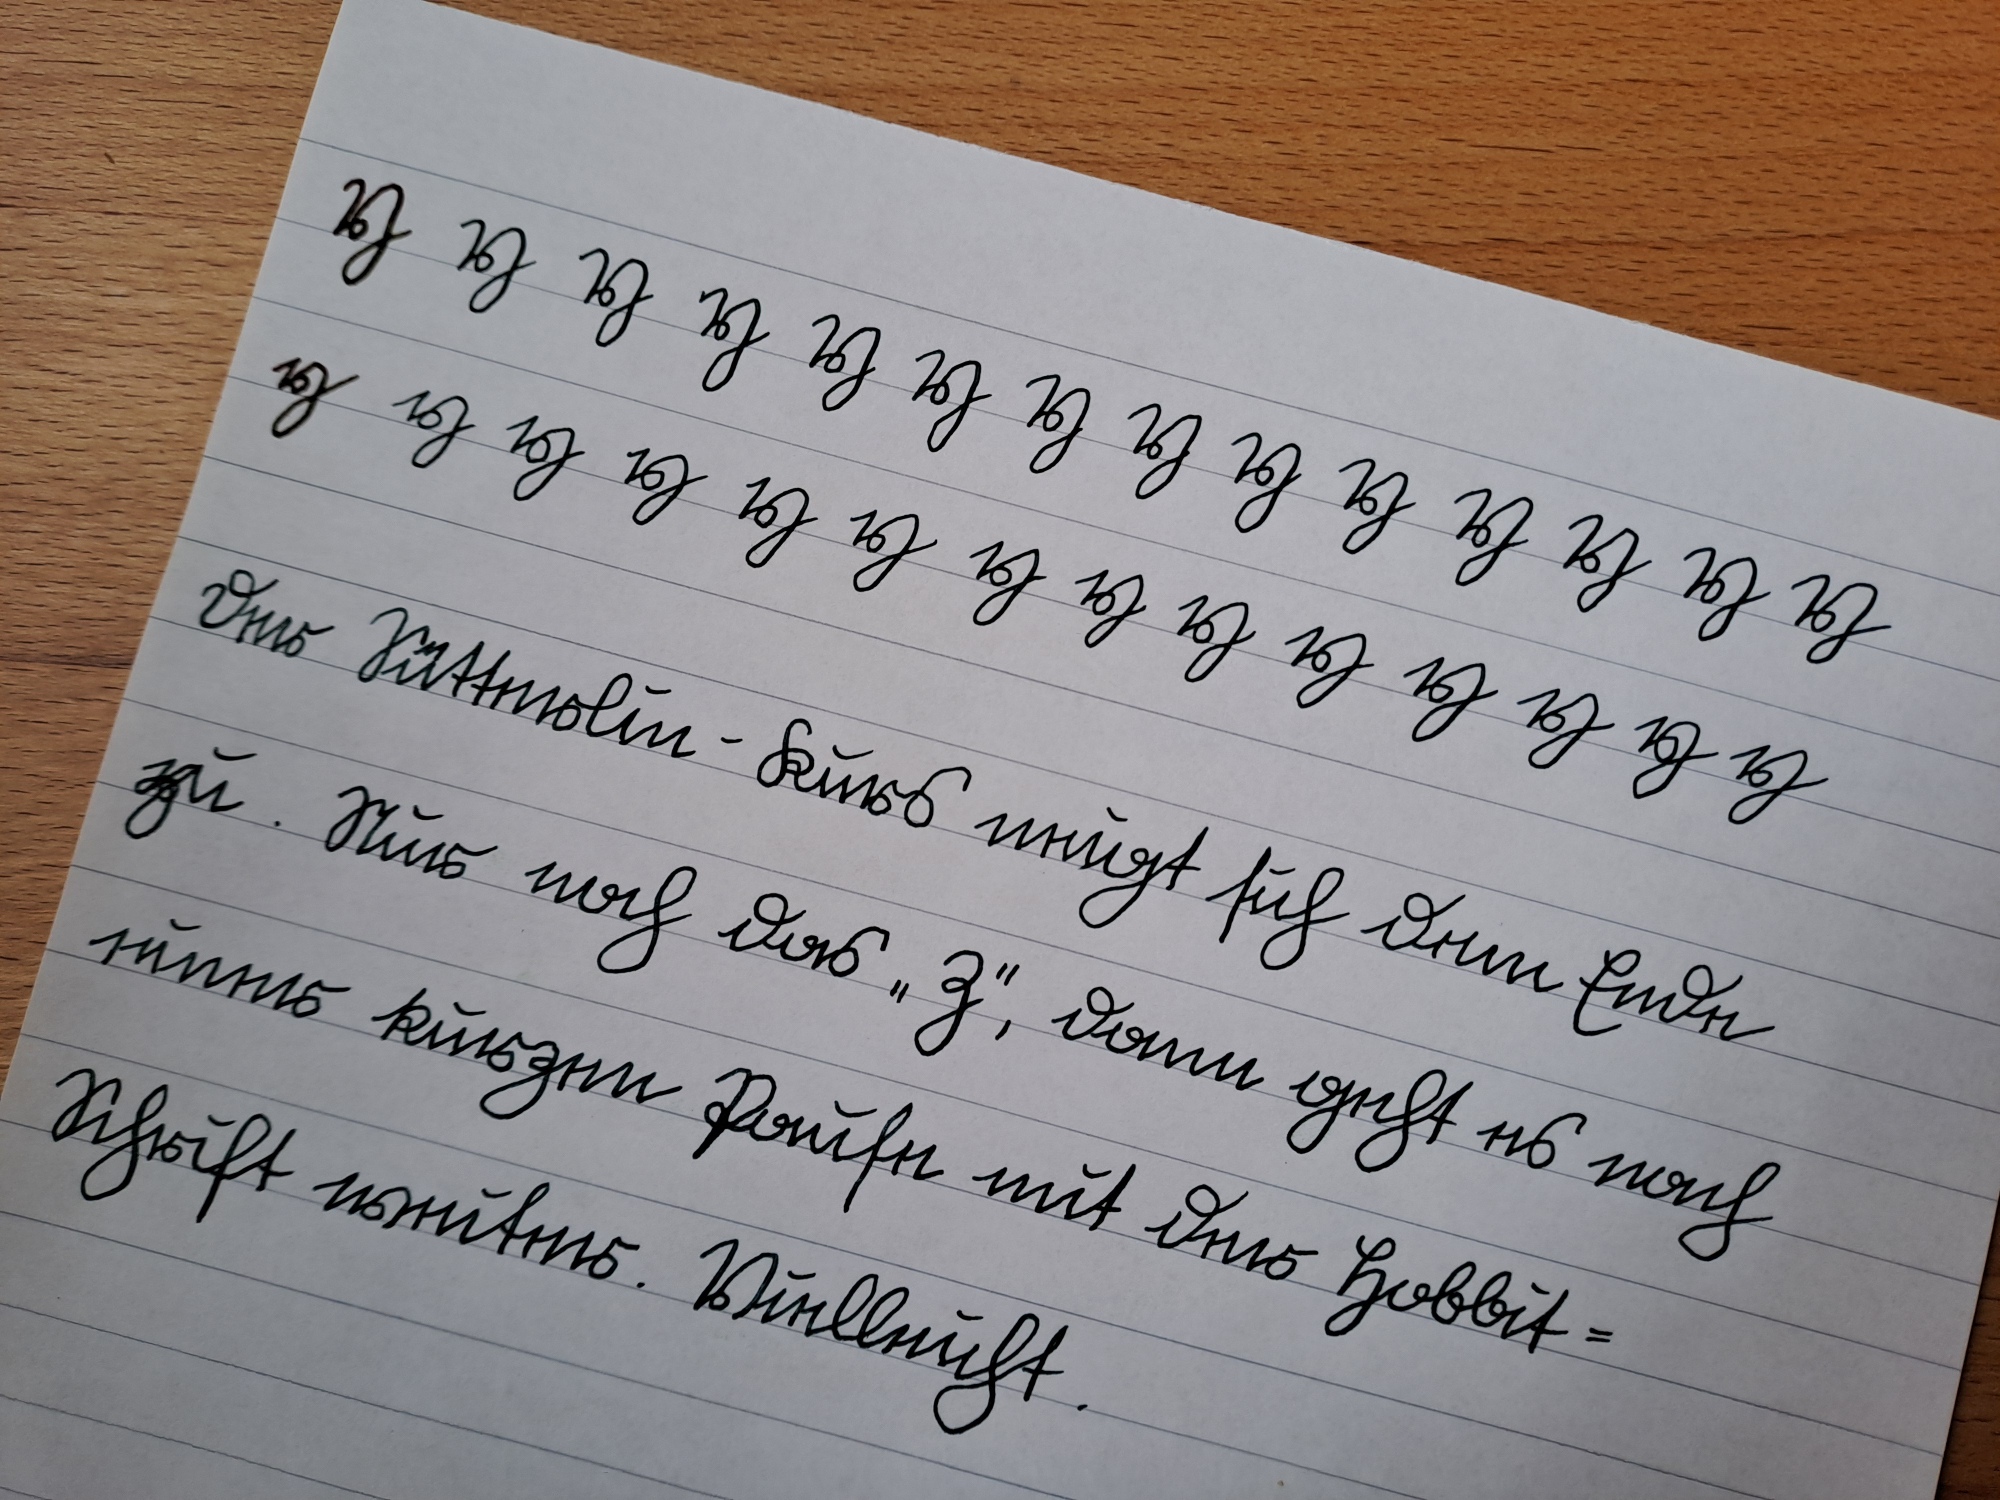 Y Y Y Y Y Y Y Y Y Y Y Y Y Y
y y y y y y y y y y y y y y
Der Sütterlin-Kurs neigt sich dem Ende
zu. Nur noch das „Z“, dann geht es nach
einer kurzen Pause mit der Hobbit=
Schrift weiter. Vielleicht.